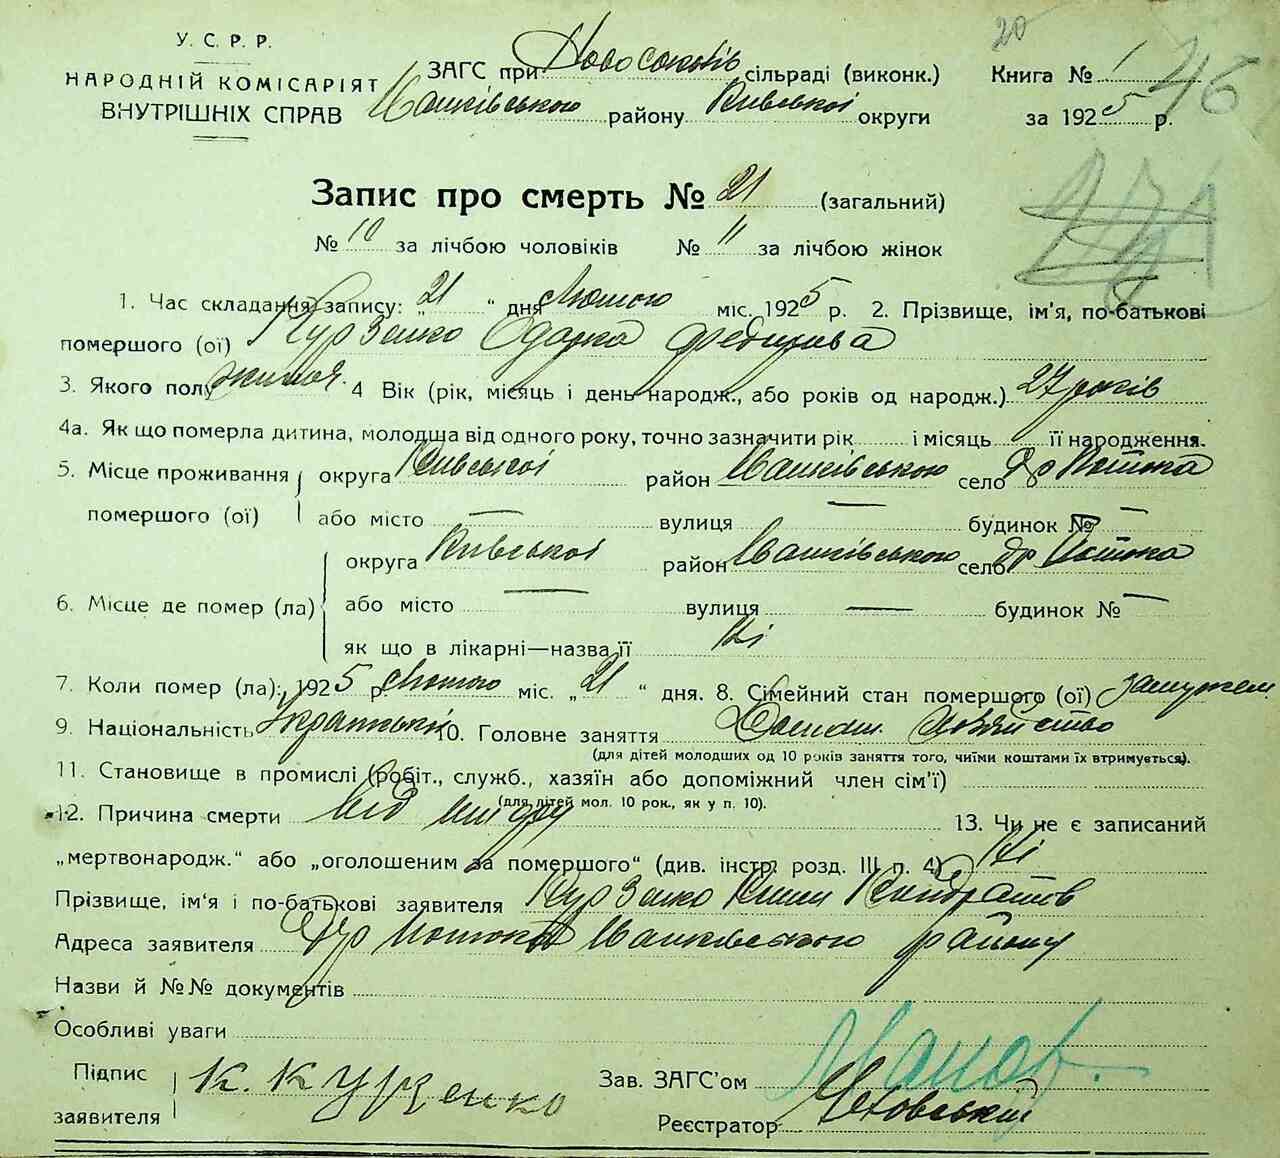 20
У. С. Р. Р.
НАРОДНІЙ КОМІСАРІЯТ
ВНУТРІШНІХ СПРАВ
ЗАГС при сільраді (виконк.)
району Київської округи
Книга № 1
за 1925 р.
46
Запис про смерть № 21 (загальний)
№ 10 за лічбою чоловіків № 11 за лічбою жінок
1. Час складання запису: „21“ дня Лютого міс. 1925 р. 2. Прізвище, ім'я, по-батькові
помершого (ої) Курзенко Одарка
3. Якого полу 4 Вік (рік, місяць і день народж., або років од народж.) 27 років
4а. Як що померла дитина, молодша від одного року, точно зазначити рік і місяць її народження.
5. Місце проживання помершого (ої) округа Київської район село
або місто — вулиця — будинок № —
6. Місце де помер (ла) округа Київської район село
або місто — вулиця — будинок № —
як що в лікарні—назва її Ні
7. Коли помер (ла): 1925 р. Лютого міс. „21“ дня. 8. Сімейний стан помершого (ої) замужем
9. Національність 10. Головне заняття
(для дітей молодших од 10 років заняття того, чиїми коштами їх втримується).
11. Становище в промислі (робіт., служб., хазяїн або допоміжний член сім'ї)
(для дітей мол. 10 рок., як у п. 10).
12. Причина смерти від 13. Чи не є записаний
„мертвонародж.“ або „оголошеним за помершого“ (див. інстр. розд. III п. 4) Ні
Прізвище, ім'я і по-батькові заявителя Курзенко
Адреса заявителя району
Назви й №№ документів
Особливі уваги
Підпис заявителя К. Курзенко
Зав. ЗАГС'ом
Реєстратор